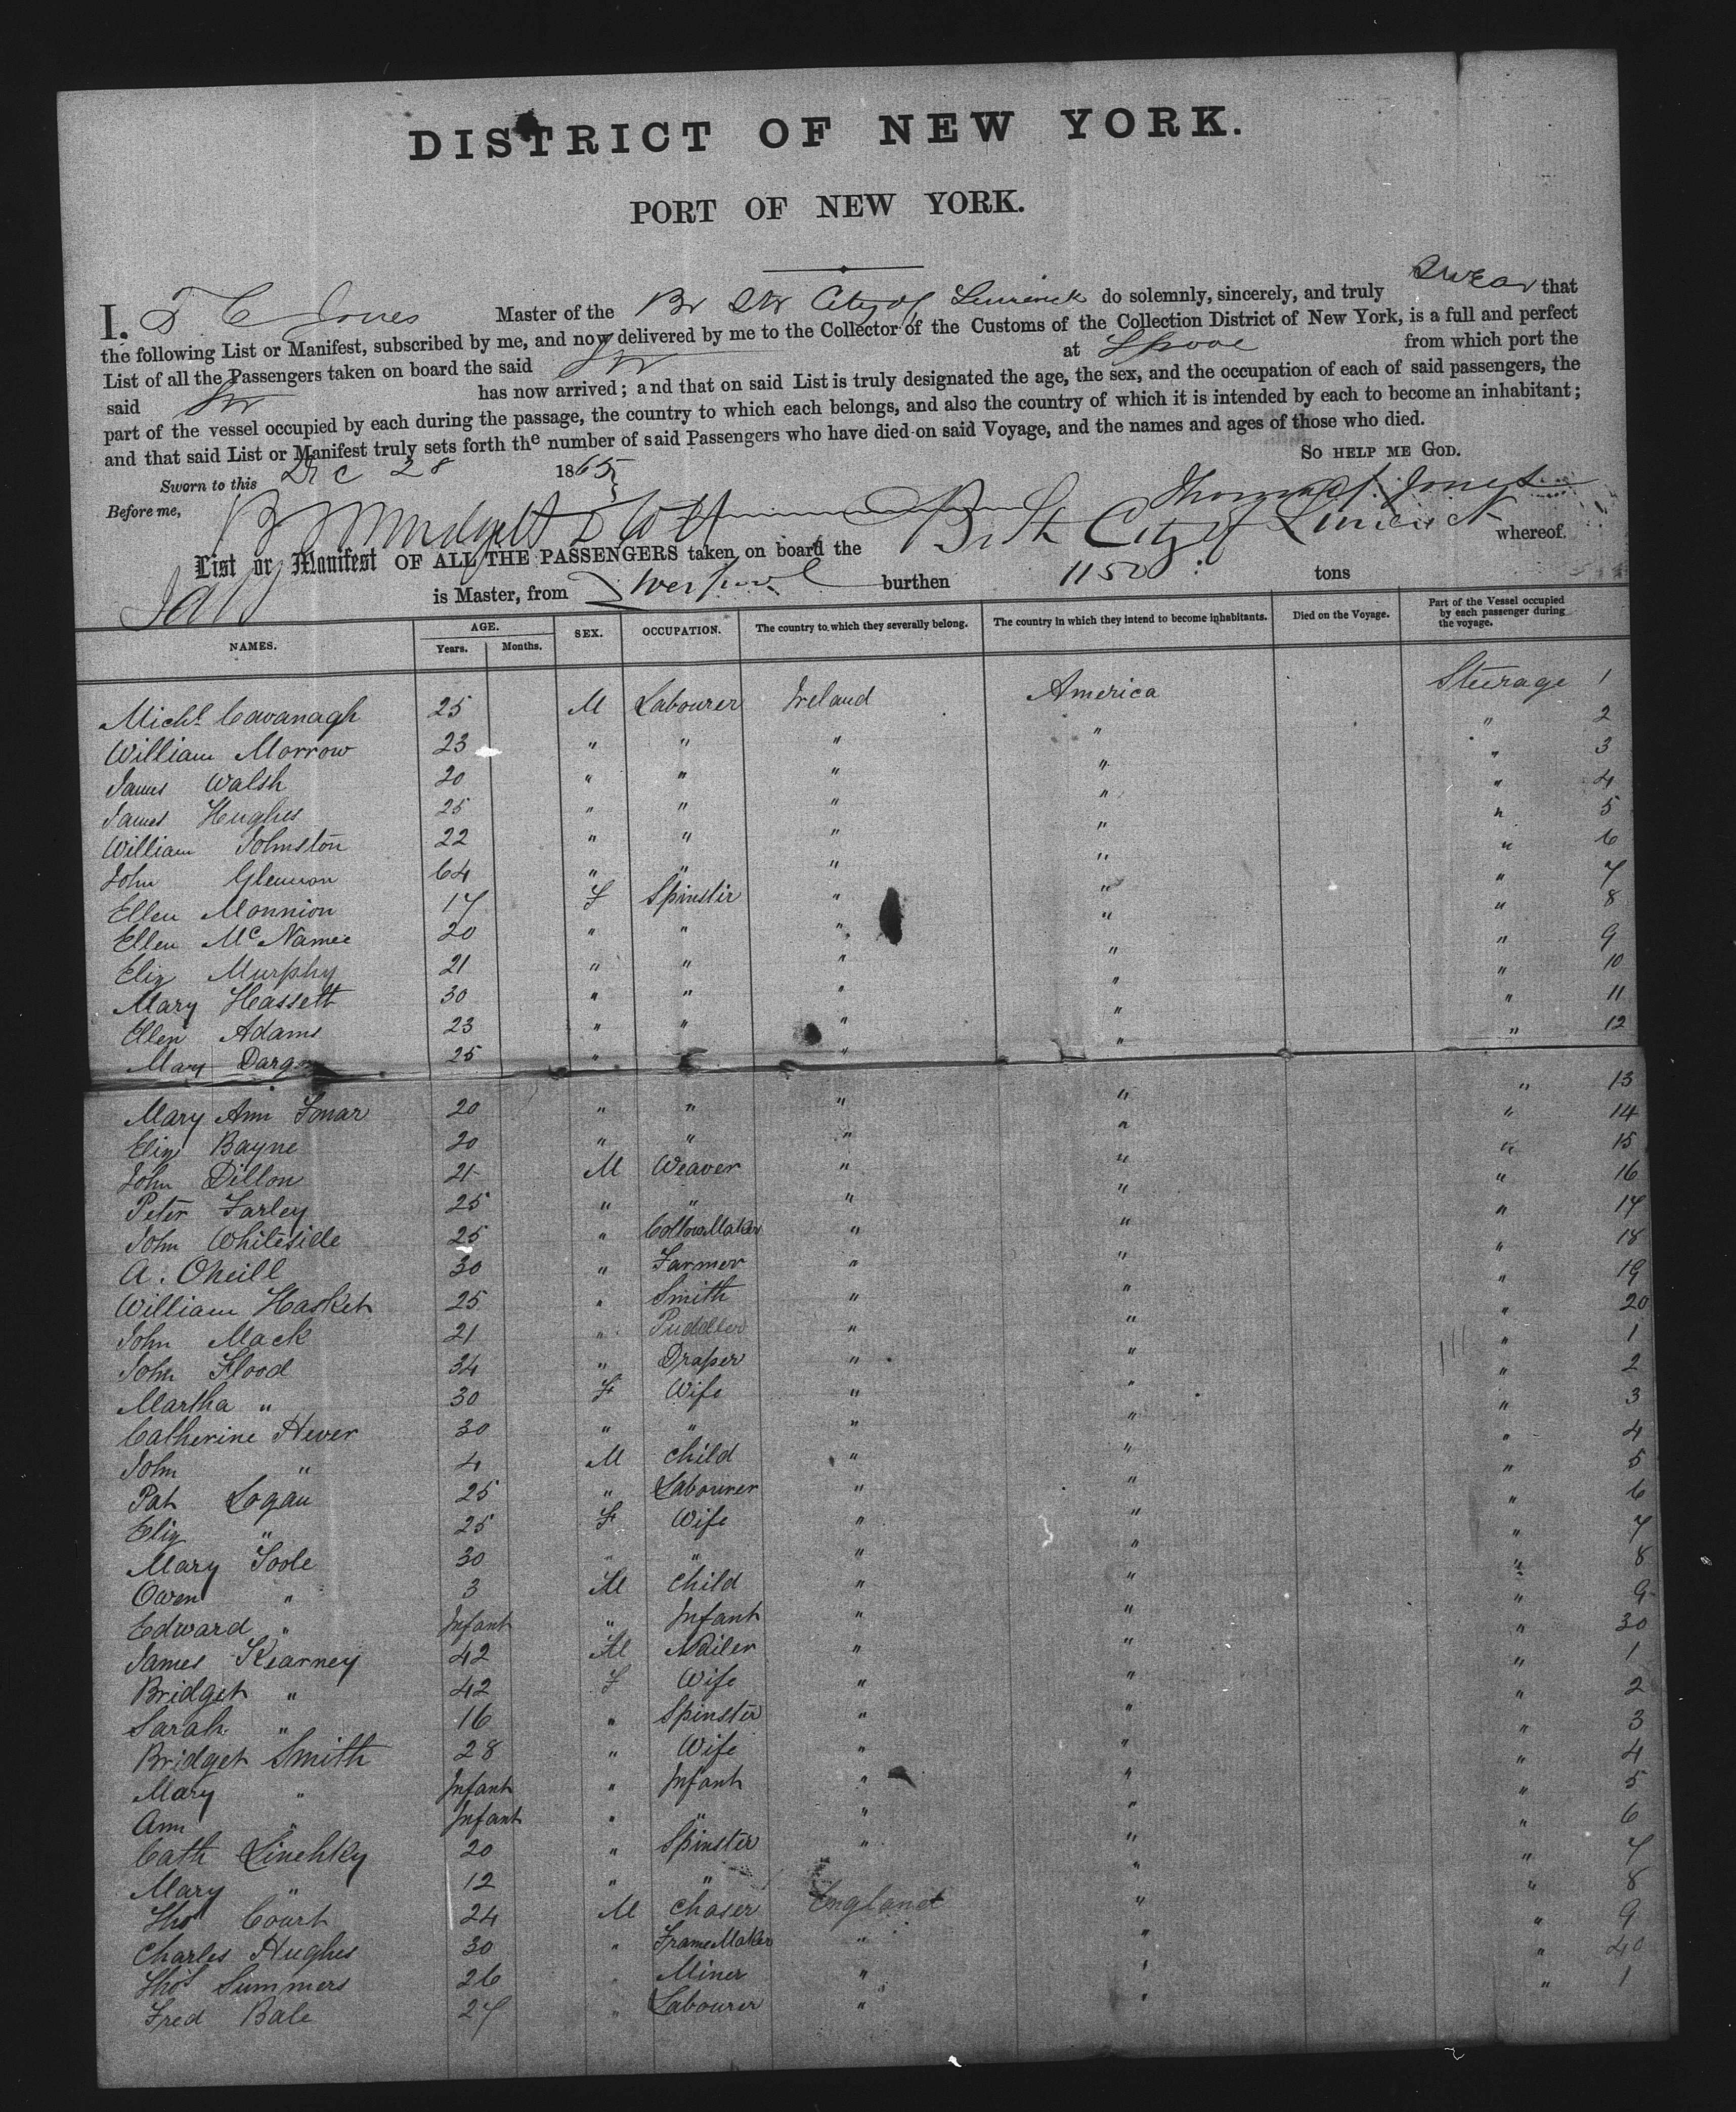 DISTRICT OF NEW YORK.
PORT OF NEW YORK.
I, T C Jones Master of the Br Str City of Limerick do solemnly, sincerely, and truly swear that
the following List or Manifest, subscribed by me, and now delivered by me to the Collector of the Customs of the Collection District of New York, is a full and perfect
List of all the Passengers taken on board the said Str at Lpool from which port the
said Str has now arrived; and that on said List is truly designated the age, the sex, and the occupation of each of said passengers, the
part of the vessel occupied by each during the passage, the country to which each belongs, and also the country of which it is intended by each to become an inhabitant;
and that said List or Manifest truly sets forth the number of said Passengers who have died on said Voyage, and the names and ages of those who died.
SO HELP ME GOD.
Sworn to this Dec 28 1865
Before me, Thomas C Jones
List or Manifest OF ALL THE PASSENGERS taken on board the Br Str City of Limerick whereof
is Master, from Liverpool burthen 1150 tons
NAMES. AGE. Years. Months. SEX. OCCUPATION. The country to which they severally belong. The country in which they intend to become inhabitants. Died on the Voyage. Part of the Vessel occupied by each passenger during the voyage.
Michl Cavanagh 25 M Labourer Ireland America Steerage 1
William Morrow 23 " " " " " 2
James Walsh 20 " " " " " 3
James Hughes 25 " " " " " 4
William Johnston 22 " " " " " 5
John Glennon 64 " " " " " 6
Ellen Monnion 17 F Spinster " " " 7
Ellen McNamee 20 " " " " " 8
Eliz Murphy 21 " " " " " 9
Mary Hassett 30 " " " " " 10
Ellen Adams 23 " " " " " 11
Mary 25 " " " " " 12
Mary Ann 20 " " " " " 13
Eliz Bayne 20 " " " " " 14
John Dillon 21 M Weaver " " " 15
Peter Farley 25 " " " " " 16
John Whiteside 25 " " " " 17
A. Oneill 30 " Farmer " " " 18
William Hasket 25 " Smith " " " 19
John Mack 21 " Pudeller " " " 20
John Flood 34 " Draper " " " 1
Martha " 30 F Wife " " " 2
Catherine Hever 30 " " " " " 3
John " 4 M Child " " " 4
Pat Logan 25 " Labourer " " " 5
Eliz " 25 F Wife " " " 6
Mary Toole 30 " " " " " 7
Owen " 3 M Child " " " 8
Edward " Infant " Infant " " " 9
James Kearney 42 M Nailer " " " 30
Bridget " 42 F Wife " " " 1
Sarah " 16 " Spinster " " " 2
Bridget Smith 28 " Wife " " " 3
Mary " Infant " Infant " " " 4
Ann " Infant " " " " " 5
Cath Linehky 20 " Spinster " " " 6
Mary " 12 " " " " " 7
Thos Court 24 M Chaser England " " 8
Charles Hughes 30 " FrameMaker " " " 9
Thos Summers 26 " Miner " " " 40
Fred Bale 27 " Labourer " " " 1